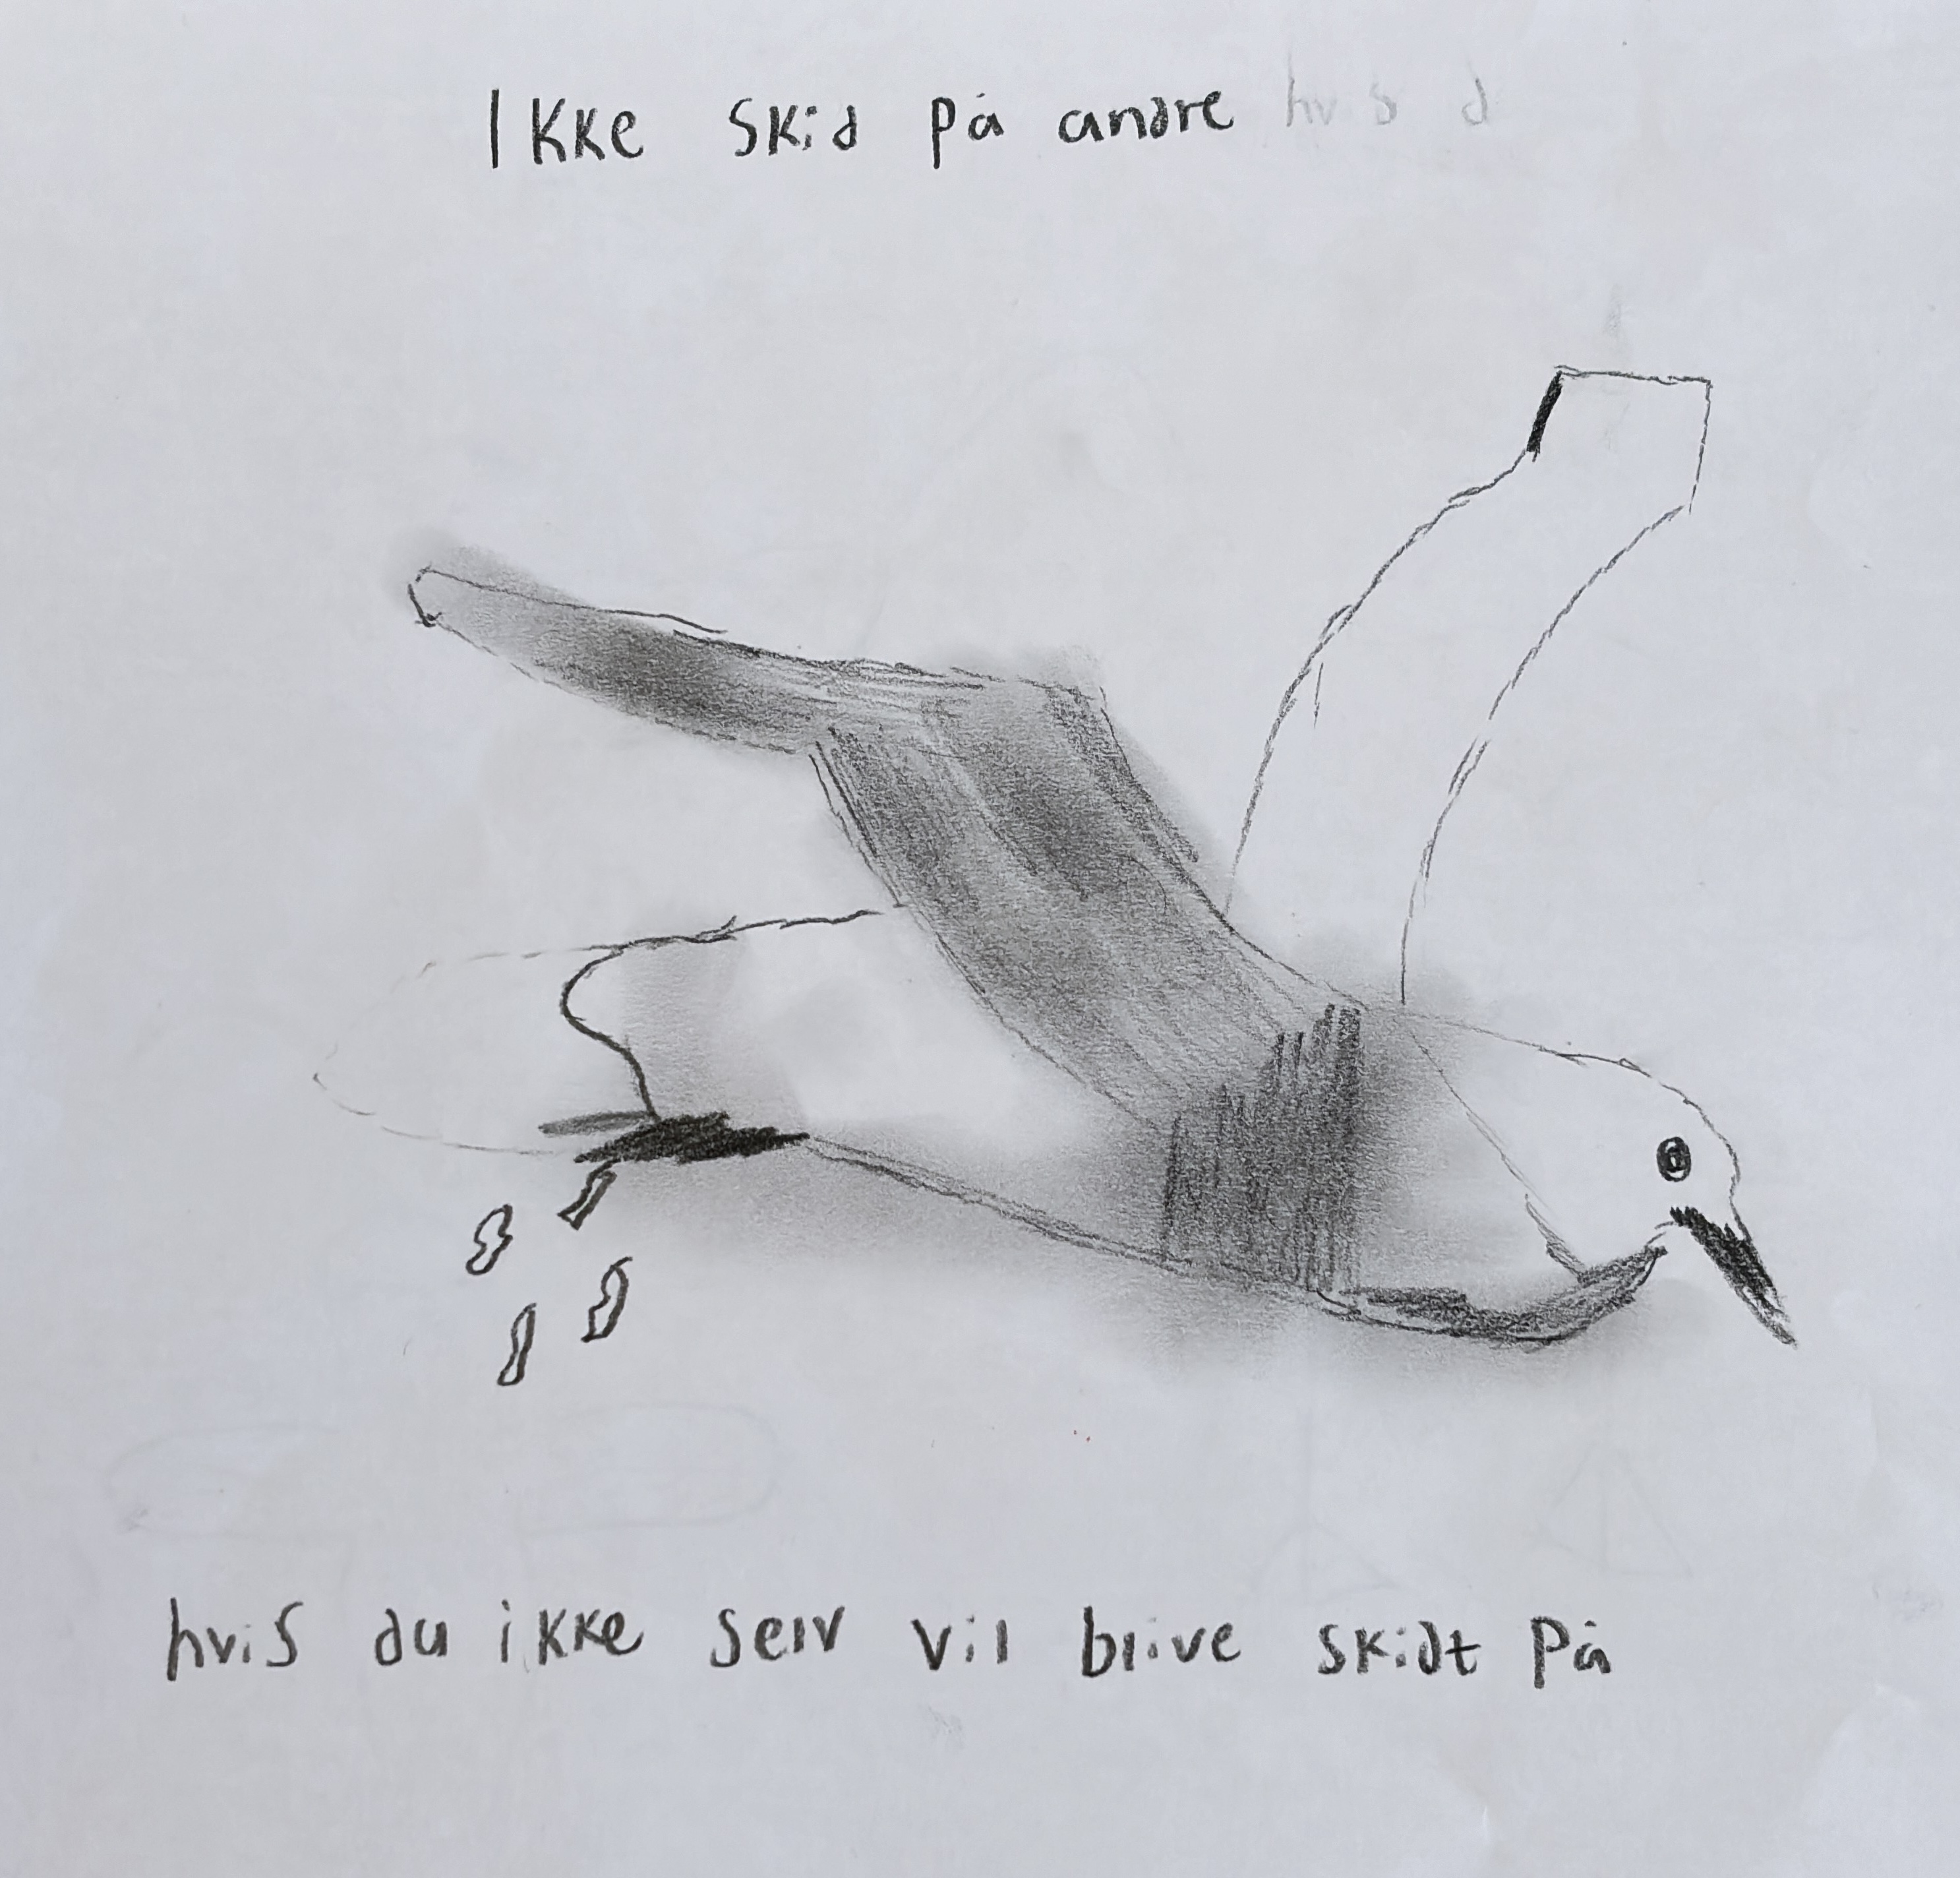 Ikke skid på andre hvis d
hvis du ikke selv vil blive skidt på